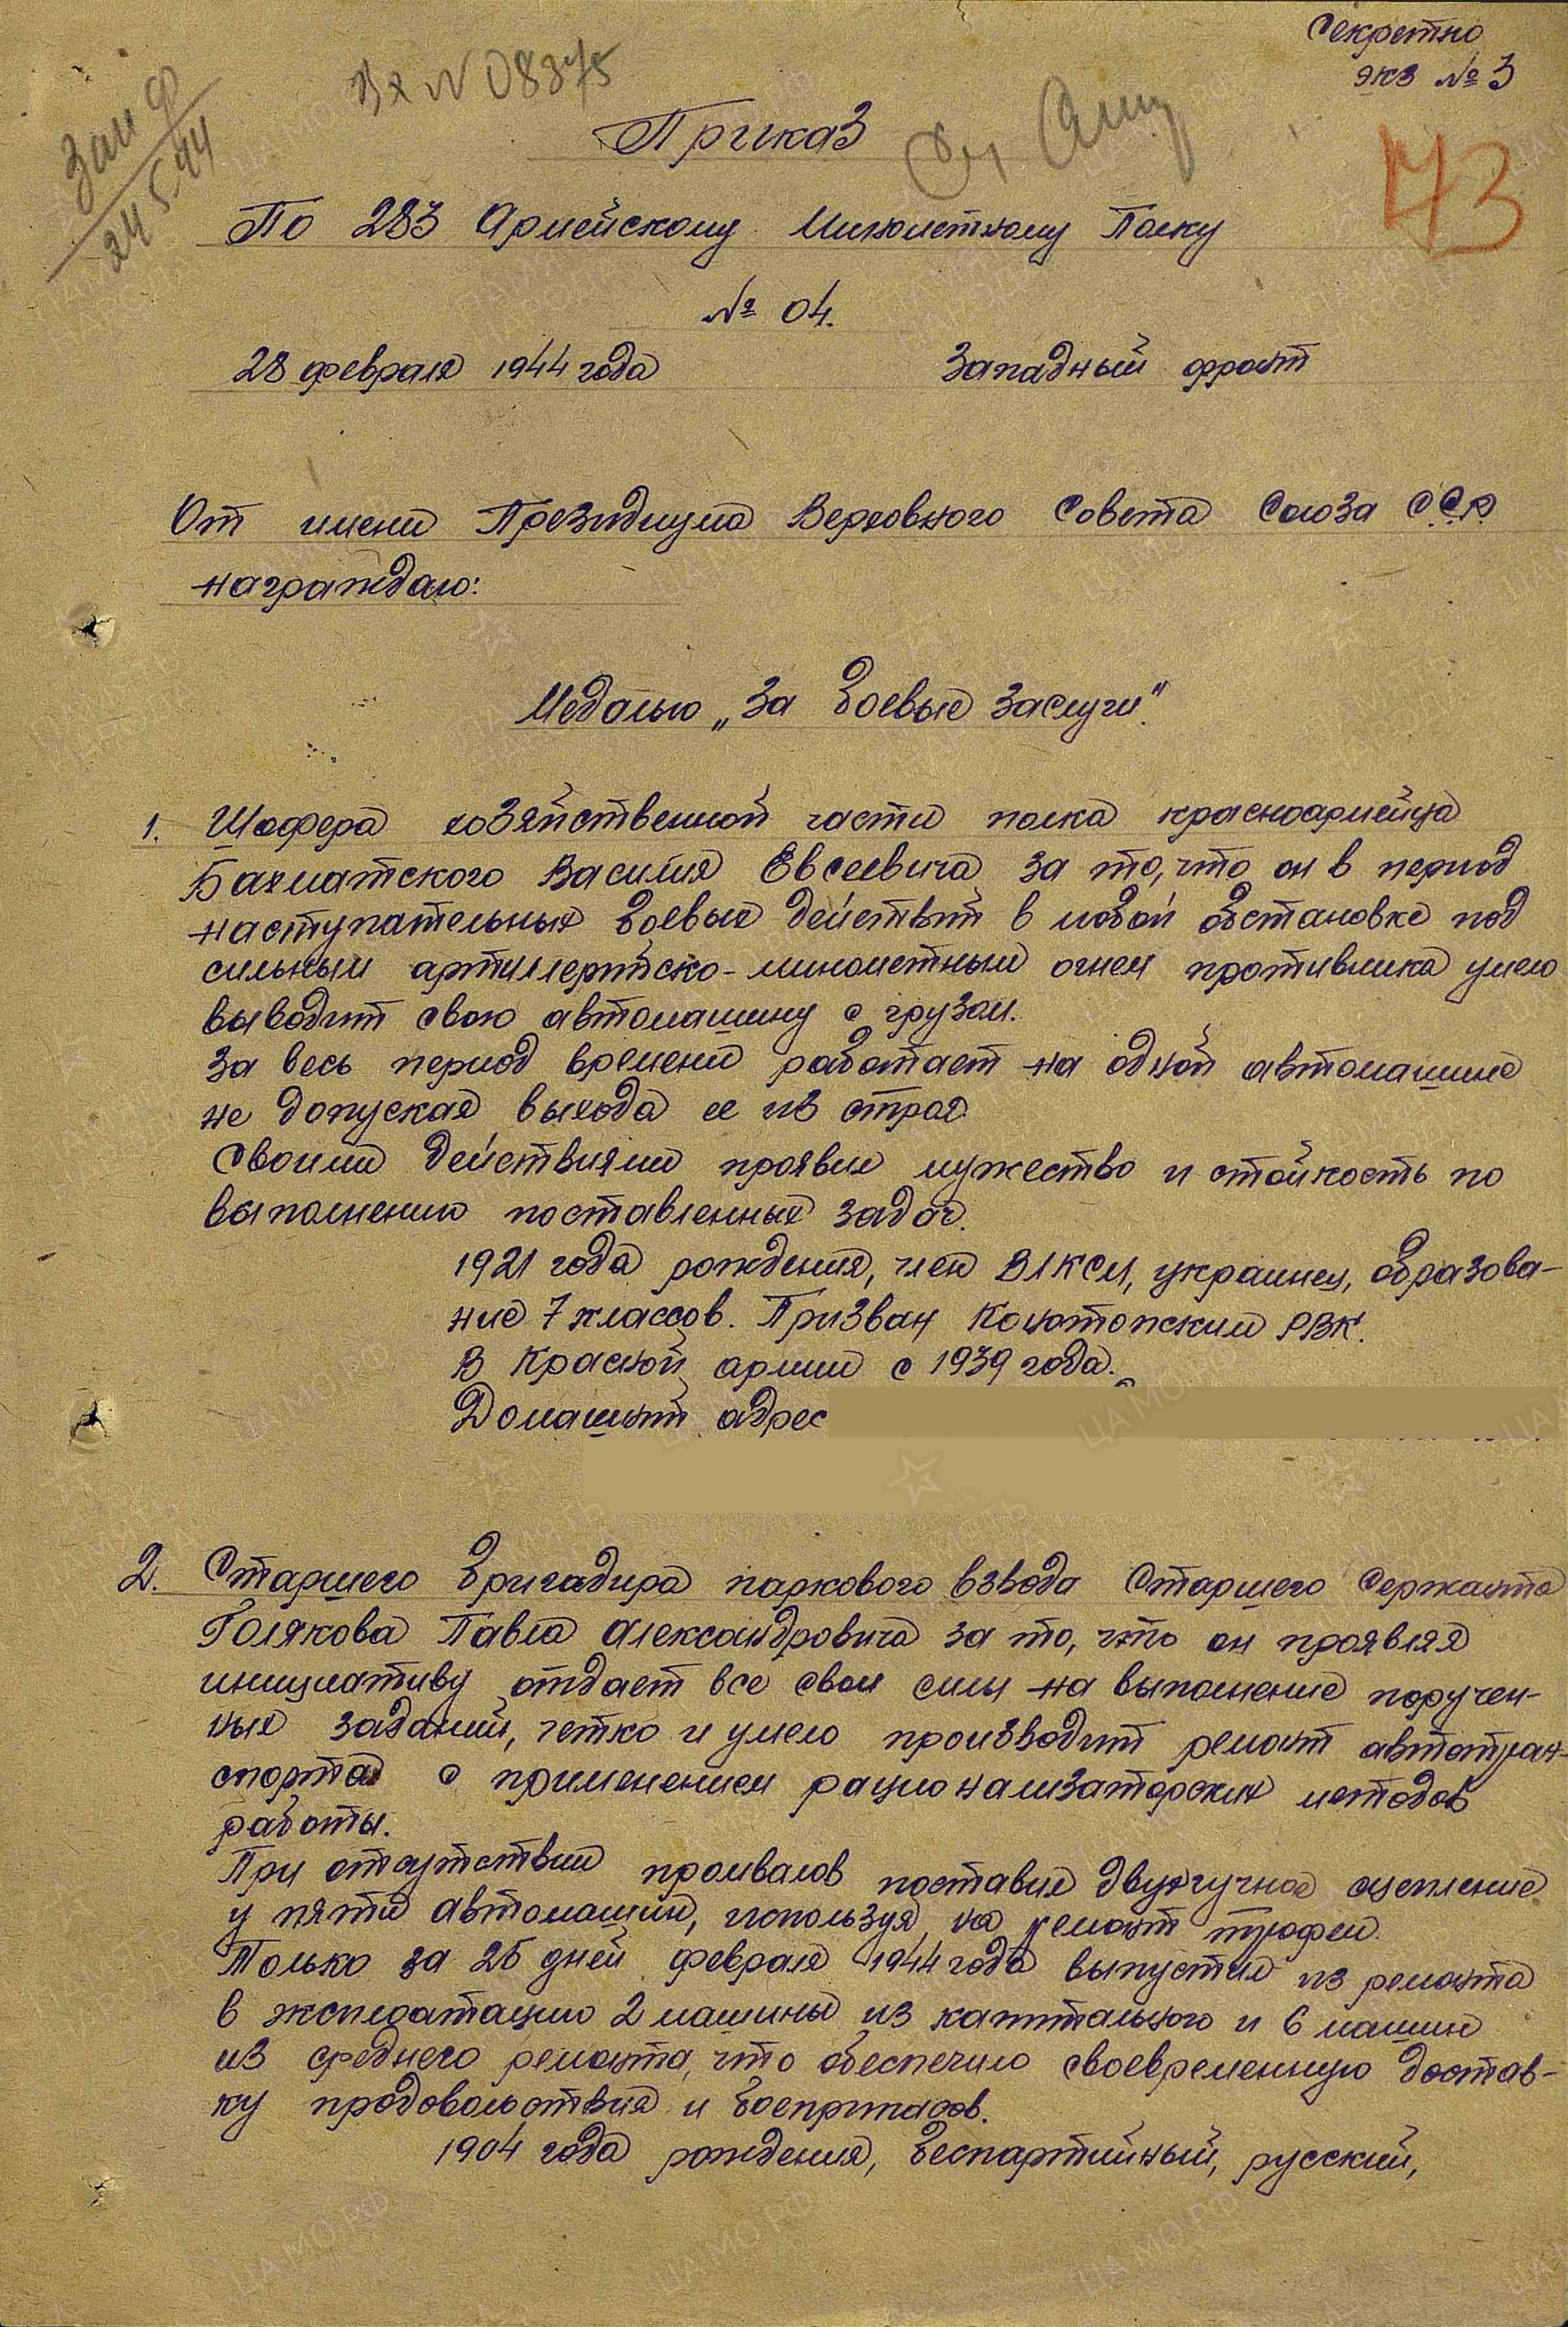 Секретно
экз № 3
Вх N 08375
24 5.44
73
Приказ
По 283 Армейскому Миномётному Полку
№ 04.
28 февраля 1944 года Западный фронт
От имени Президиума Верховного Совета Союза ССР
награждаю:
Медалью „За боевые заслуги".
1. Шофера хозяйственной части полка красноармейца
Бахматского Василия Евсеевича за то, что он в период
наступательных боевых действий в любой обстановке под
сильным артиллерийско-минометным огнем противника умело
выводит свою автомашину с грузом.
За весь период времени работает на одной автомашине
не допуская выхода ее из строя
Своими действиями проявил мужество и стойкость по
выполнению поставленных задач.
1921 года рождения, член ВЛКСМ, украинец, образова-
ние 7 классов. Призван Конотопским РВК.
В Красной армии с 1939 года.
Домашний адрес
2. Старшего бригадира паркового взвода Старшего Сержанта
Голякова Павла Александровича за то, что он проявляя
инициативу отдает все свои силы на выполнение поручен-
ных заданий, четко и умело производит ремонт автотран-
спорта с применением рационализаторских методов
работы.
При отсутствии промвалов поставил двухручное сцепление
у пяти автомашин, используя на ремонт трофеи.
Только за 25 дней февраля 1944 года выпустил из ремонта
в эксплоатацию 2 машины из капитального и 6 машин
из среднего ремонта, что обеспечило своевременную достав-
ку продовольствия и боеприпасов.
1904 года рождения, беспартийный, русский,